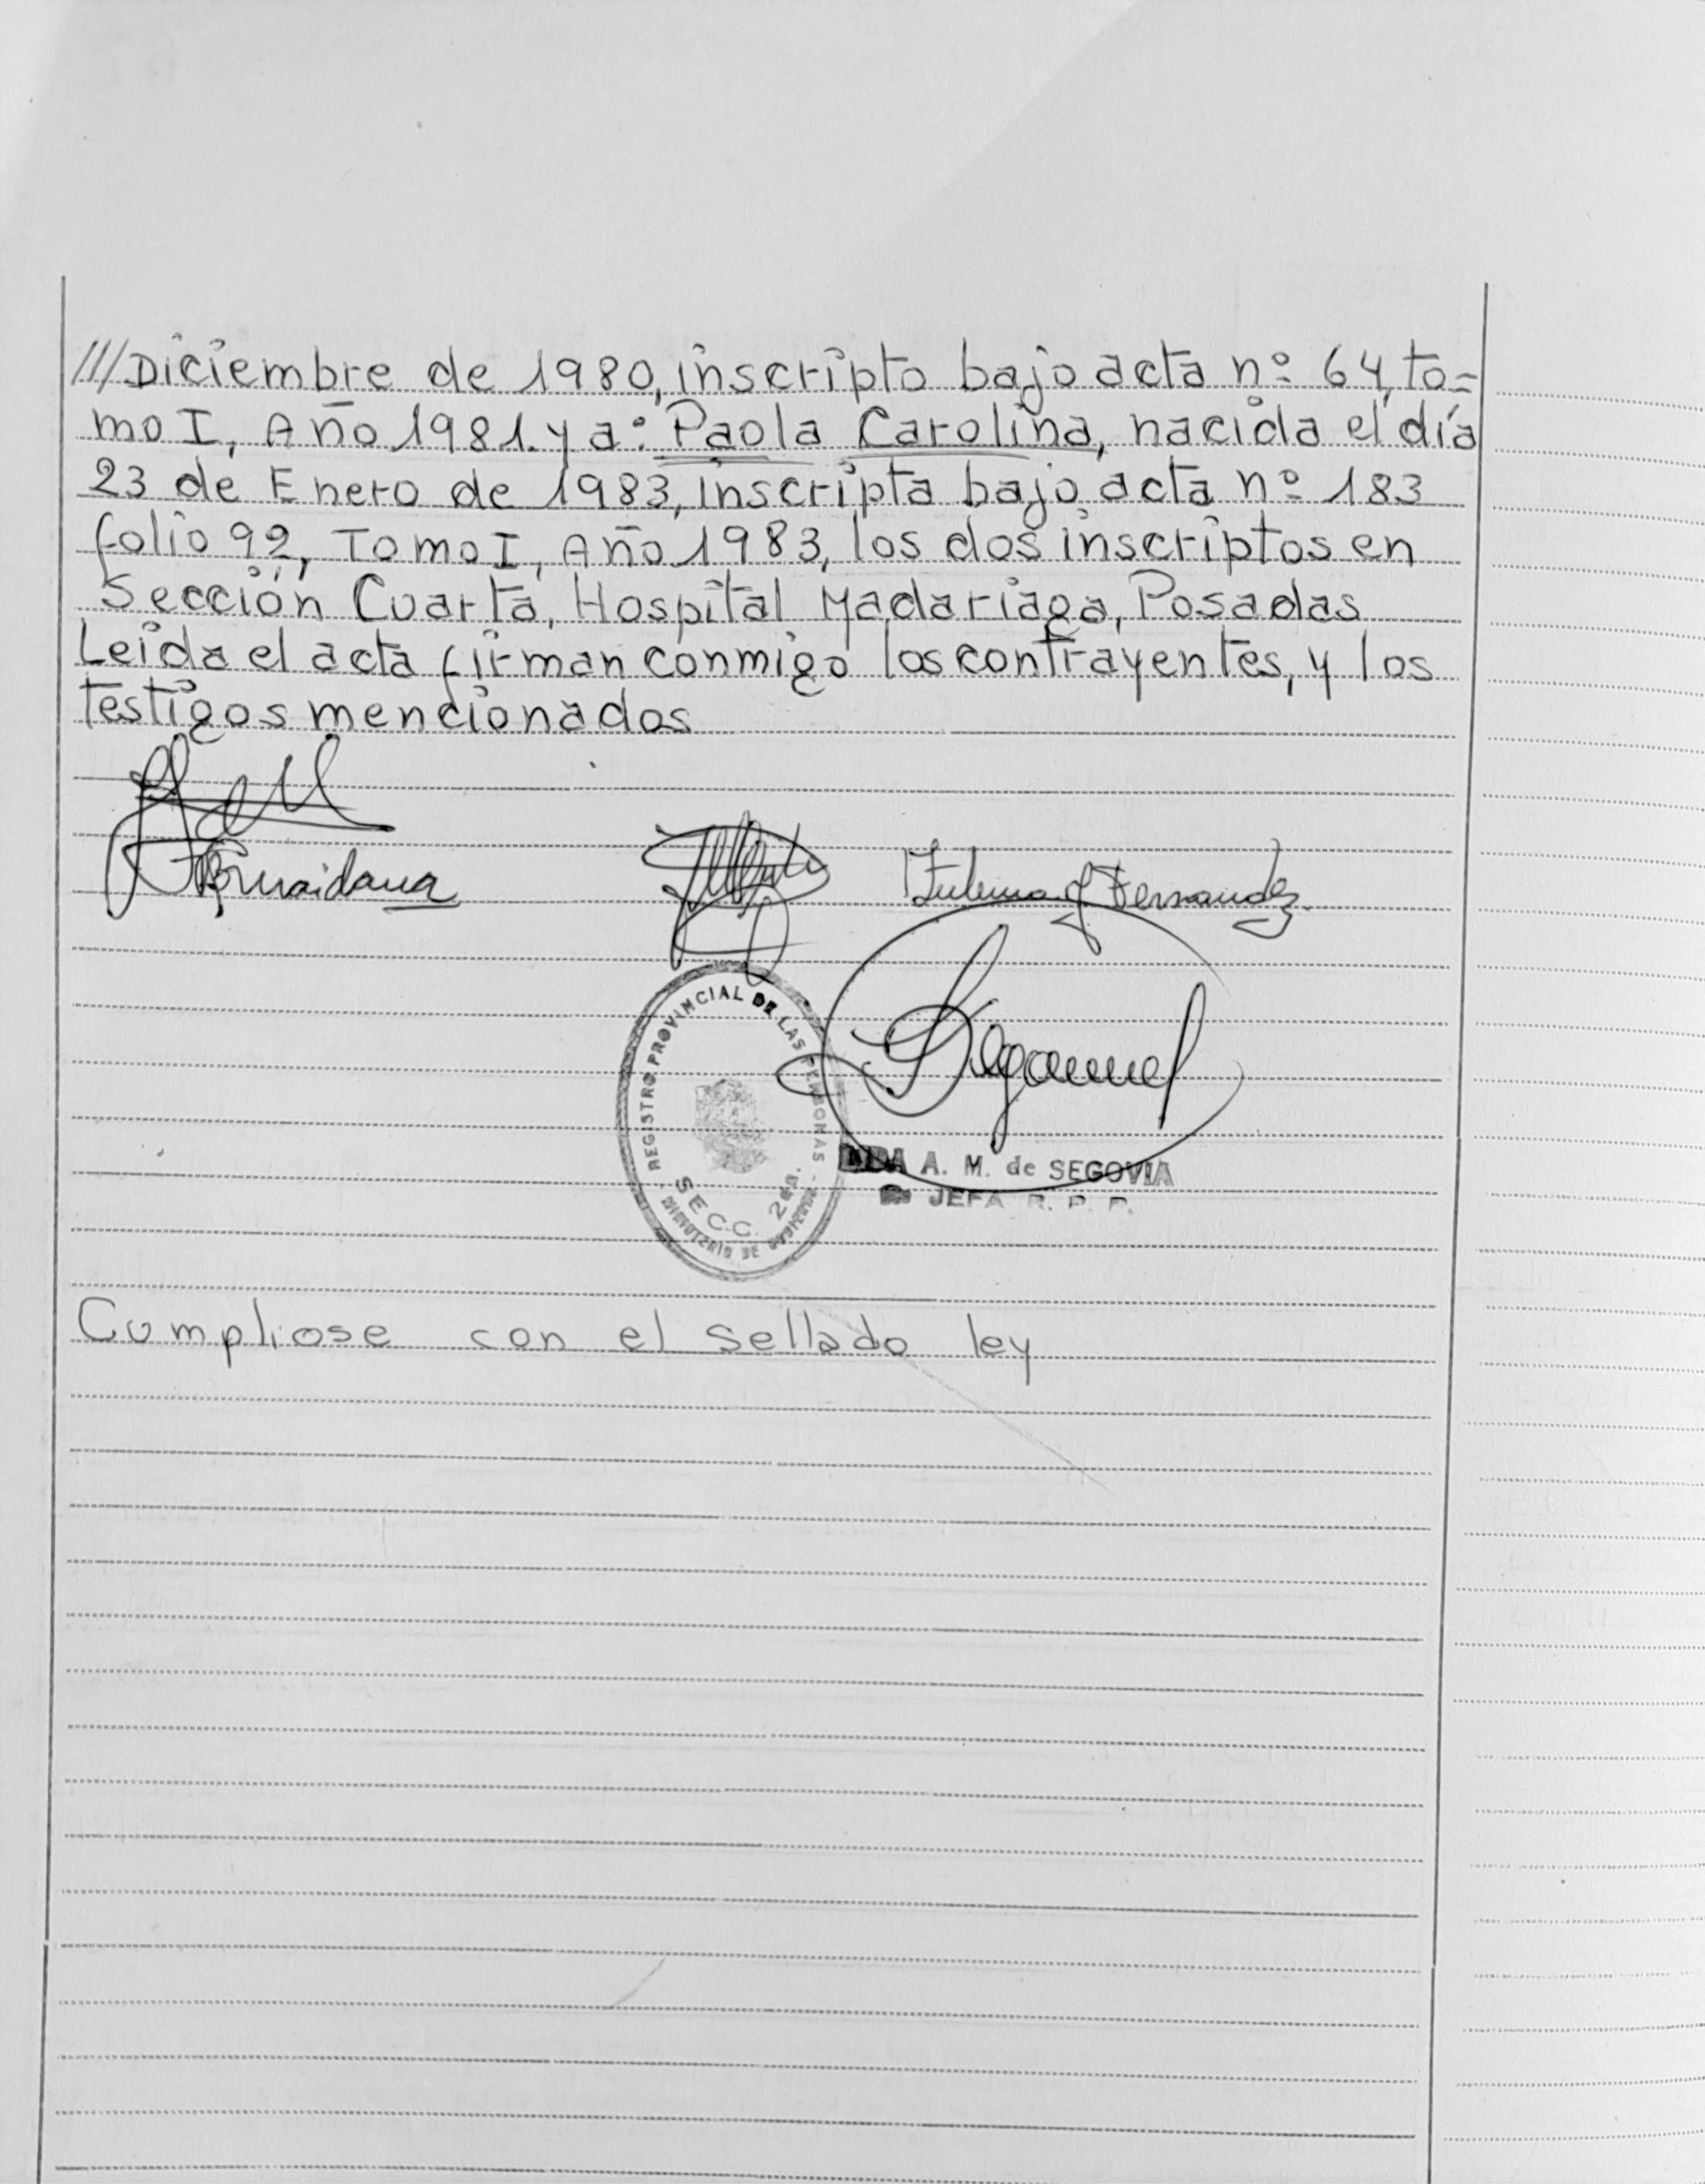 ///Diciembre de 1980, inscripto bajo acta nº 64, to=
mo I, Año 1981. y a: Paola Carolina, nacida el día
23 de Enero de 1983, inscripta bajo acta nº 183
folio 92, Tomo I, Año 1983, los dos inscriptos en
Sección Cuarta, Hospital Madariaga, Posadas
Leida el acta firman conmigo los contrayentes, y los
testigos mencionados
Fernandez
REGISTRO PROVINCIAL DE LAS PERSONAS
SECC. 2da.
MINISTERIO DE GOBIERNO
A. M. de SEGOVIA
JEFA R. P. P.
Cumpliose con el sellado ley